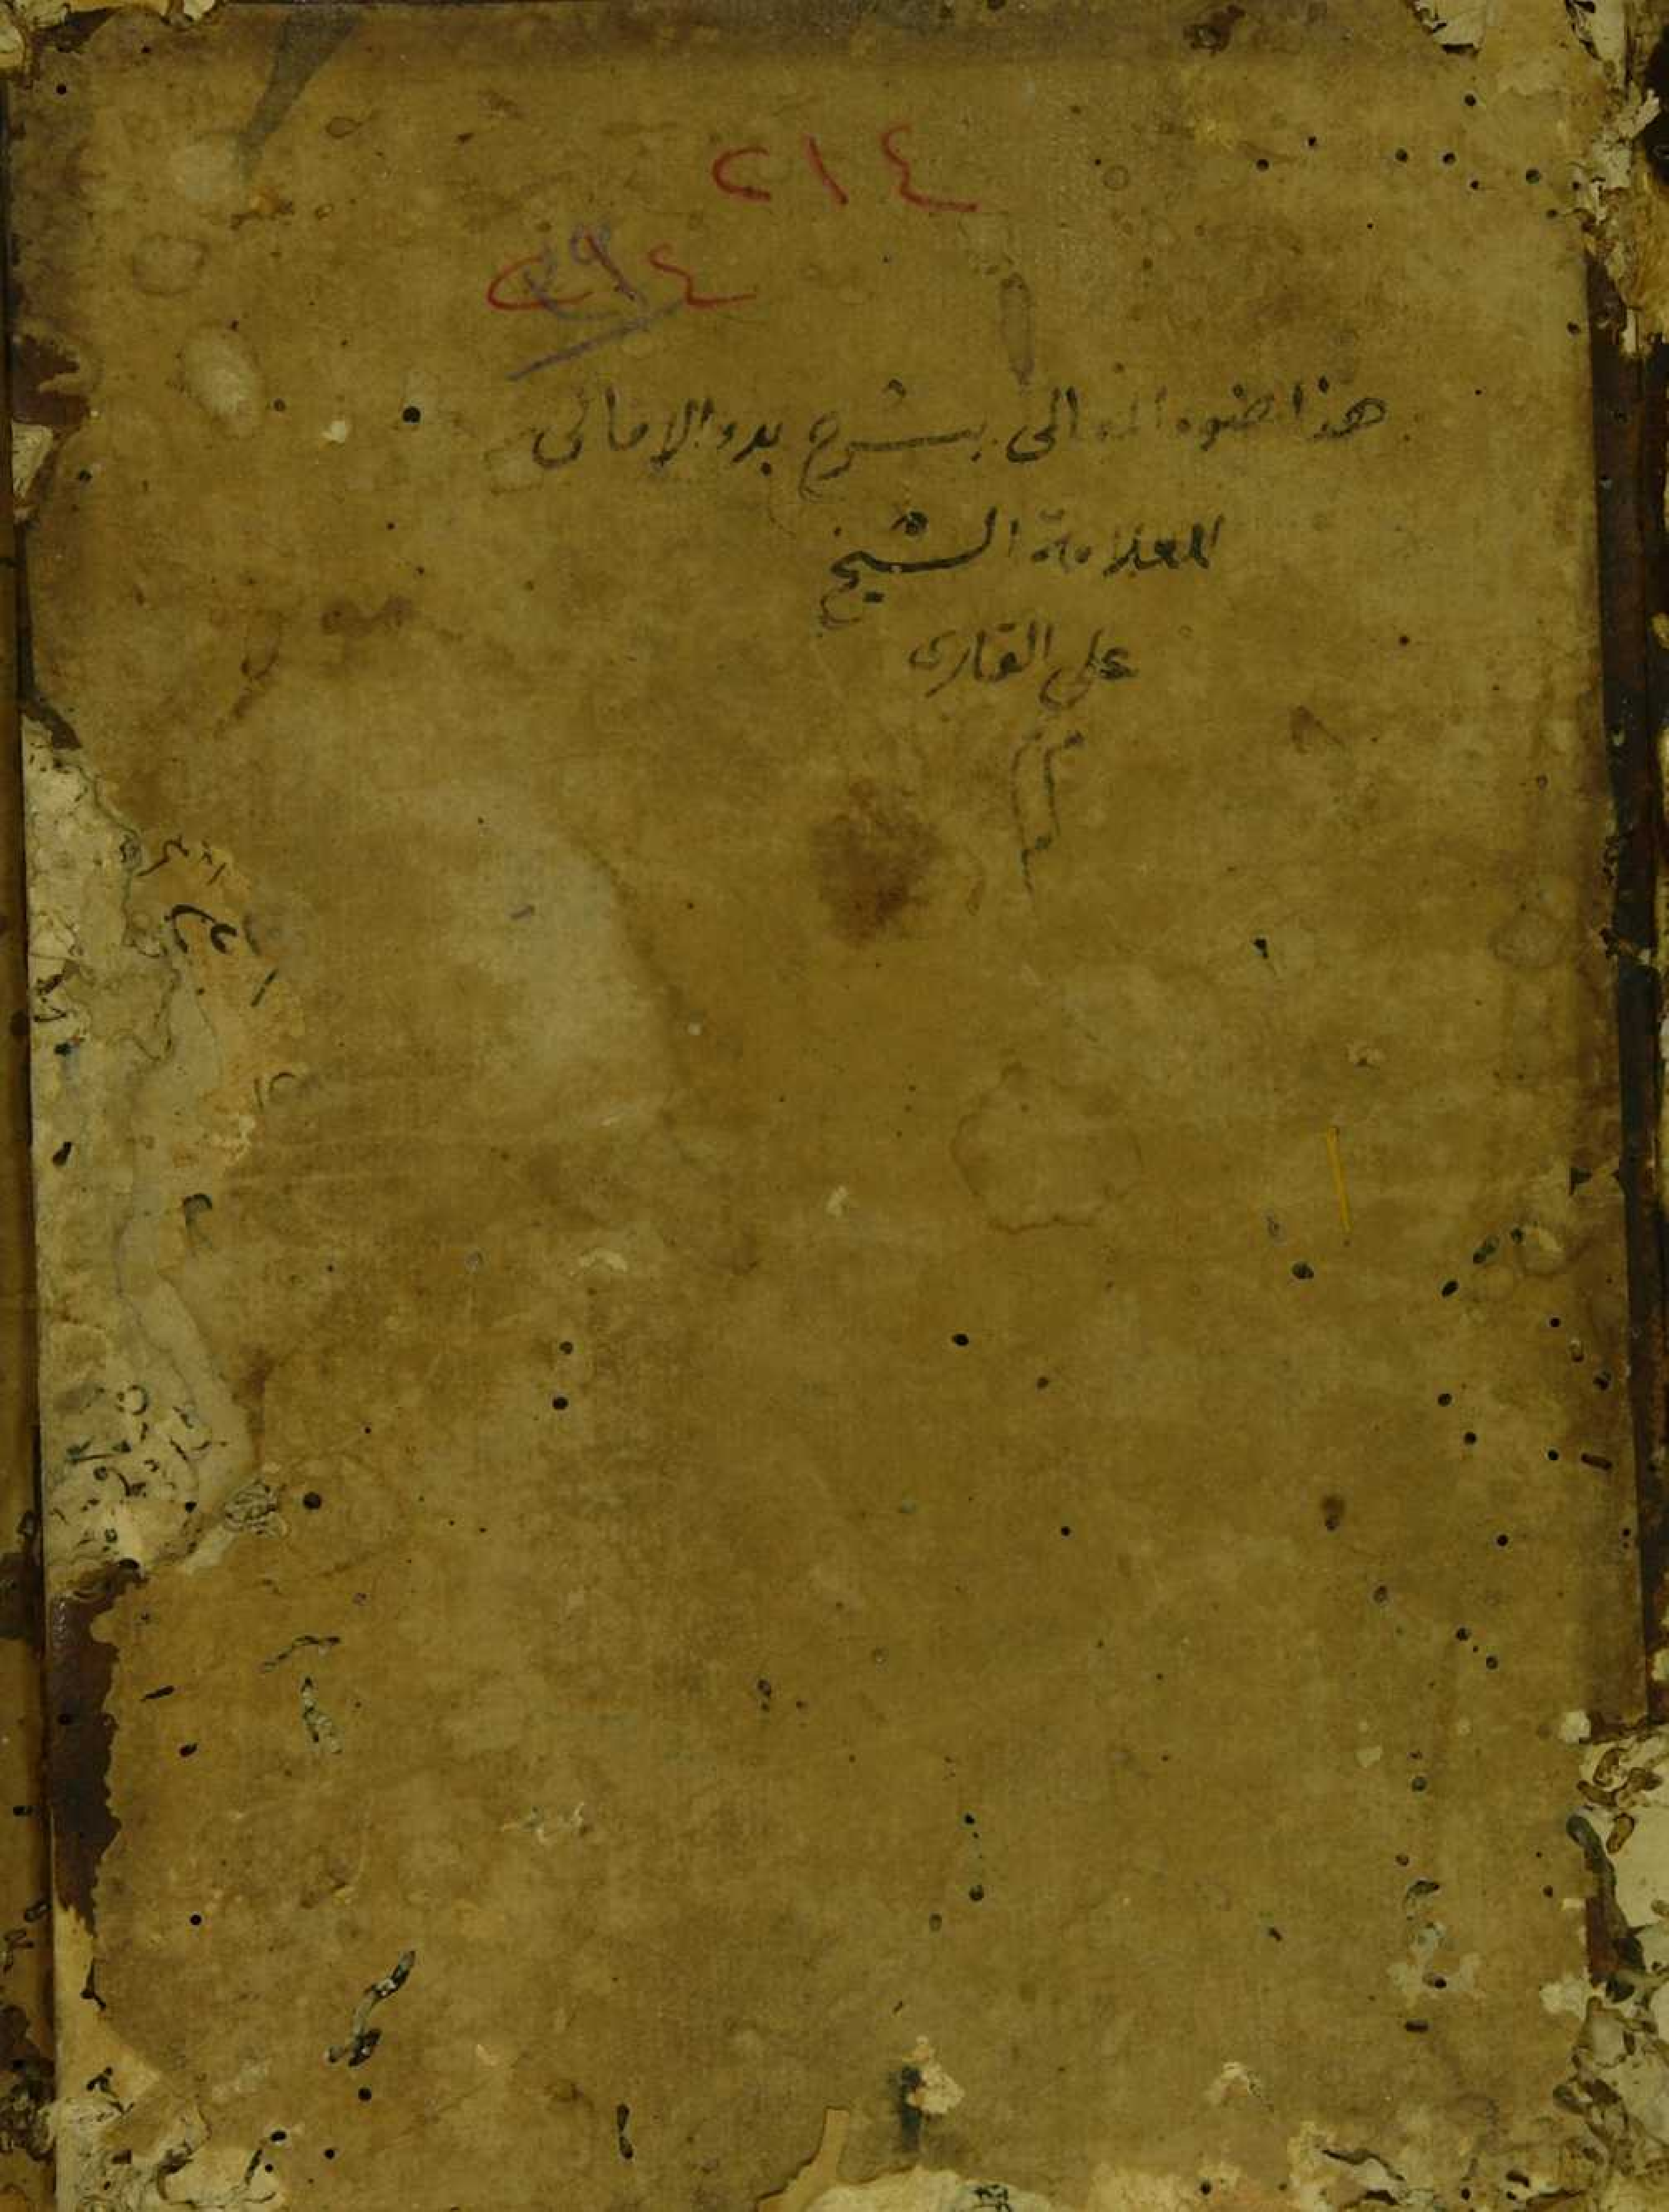 ٢١٤
٢١٤
هذا ضوء المعالى بشرح بدء الامالى
للعلامة الشيخ
على القارى